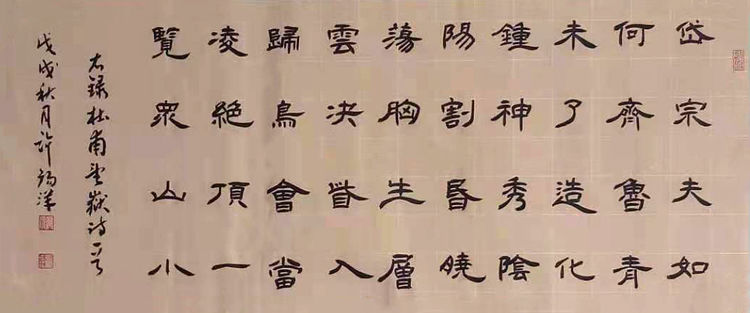 岱宗夫如
何齊魯青
未了造化
鍾神秀陰
陽割昏曉
蕩胸生層
雲決眥入
歸鳥會當
凌絕頂一
覽眾山小
右錄杜甫望嶽詩一首
戊戌秋月許